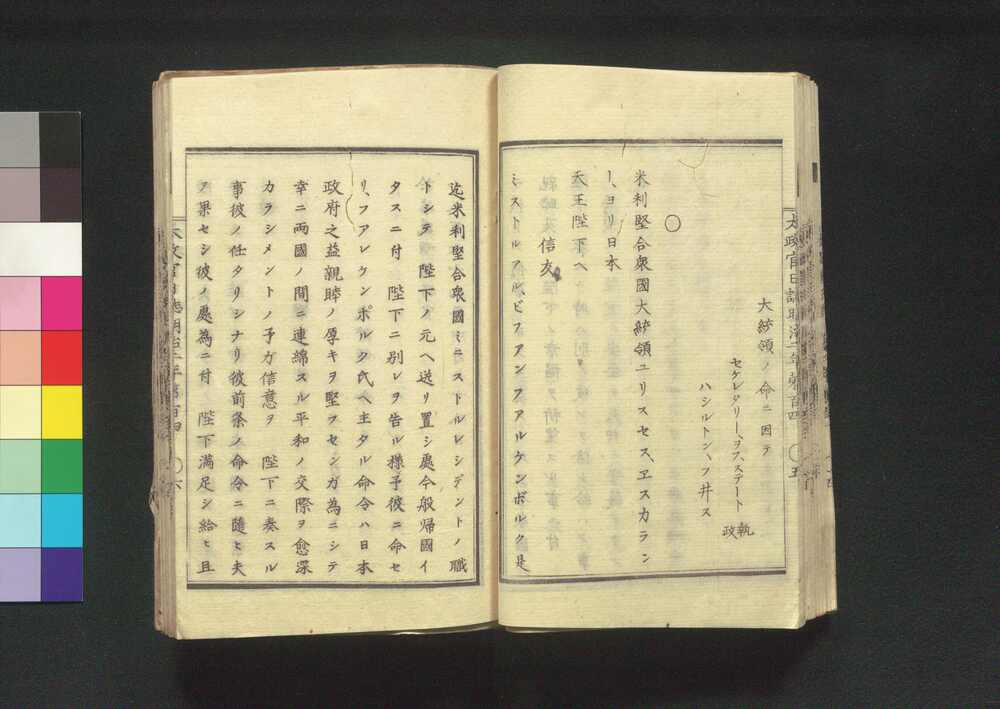 大統領ノ命ニ因テ
セクレタリー、ヲフ、ステート 執政
ハシルトン、フ井ス
○
米利堅合衆國大統領ユリスセス、ヱスカラン
ト、ヨリ日本
天王陛下ヘ
信友
ミストルフアルビフアンフアルケンボルク是
迄米利堅合衆國ミニストルレシデントノ職
トシテ 陛下ノ元ヘ送リ置シ處今般帰國イ
タスニ付 陛下ニ別レヲ告ル様予彼ニ命セ
リ、フアレケンポルク氏ヘ主タル命令ハ日本
政府之益親睦ノ厚キヲ堅フセンガ為ニシテ
幸ニ両國ノ間ニ連綿スル平和ノ交際ヲ愈深
カラシメントノ予ガ信意ヲ 陛下ニ奏スル
事彼ノ任タリシナリ彼前条ノ命令ニ随ヒ夫
ヲ果セシ彼ノ處為ニ付 陛下満足シ給ヒ且
太政官日誌明治二年第百四 ○ 五
太政官日誌明治二年第百四 ○ 六